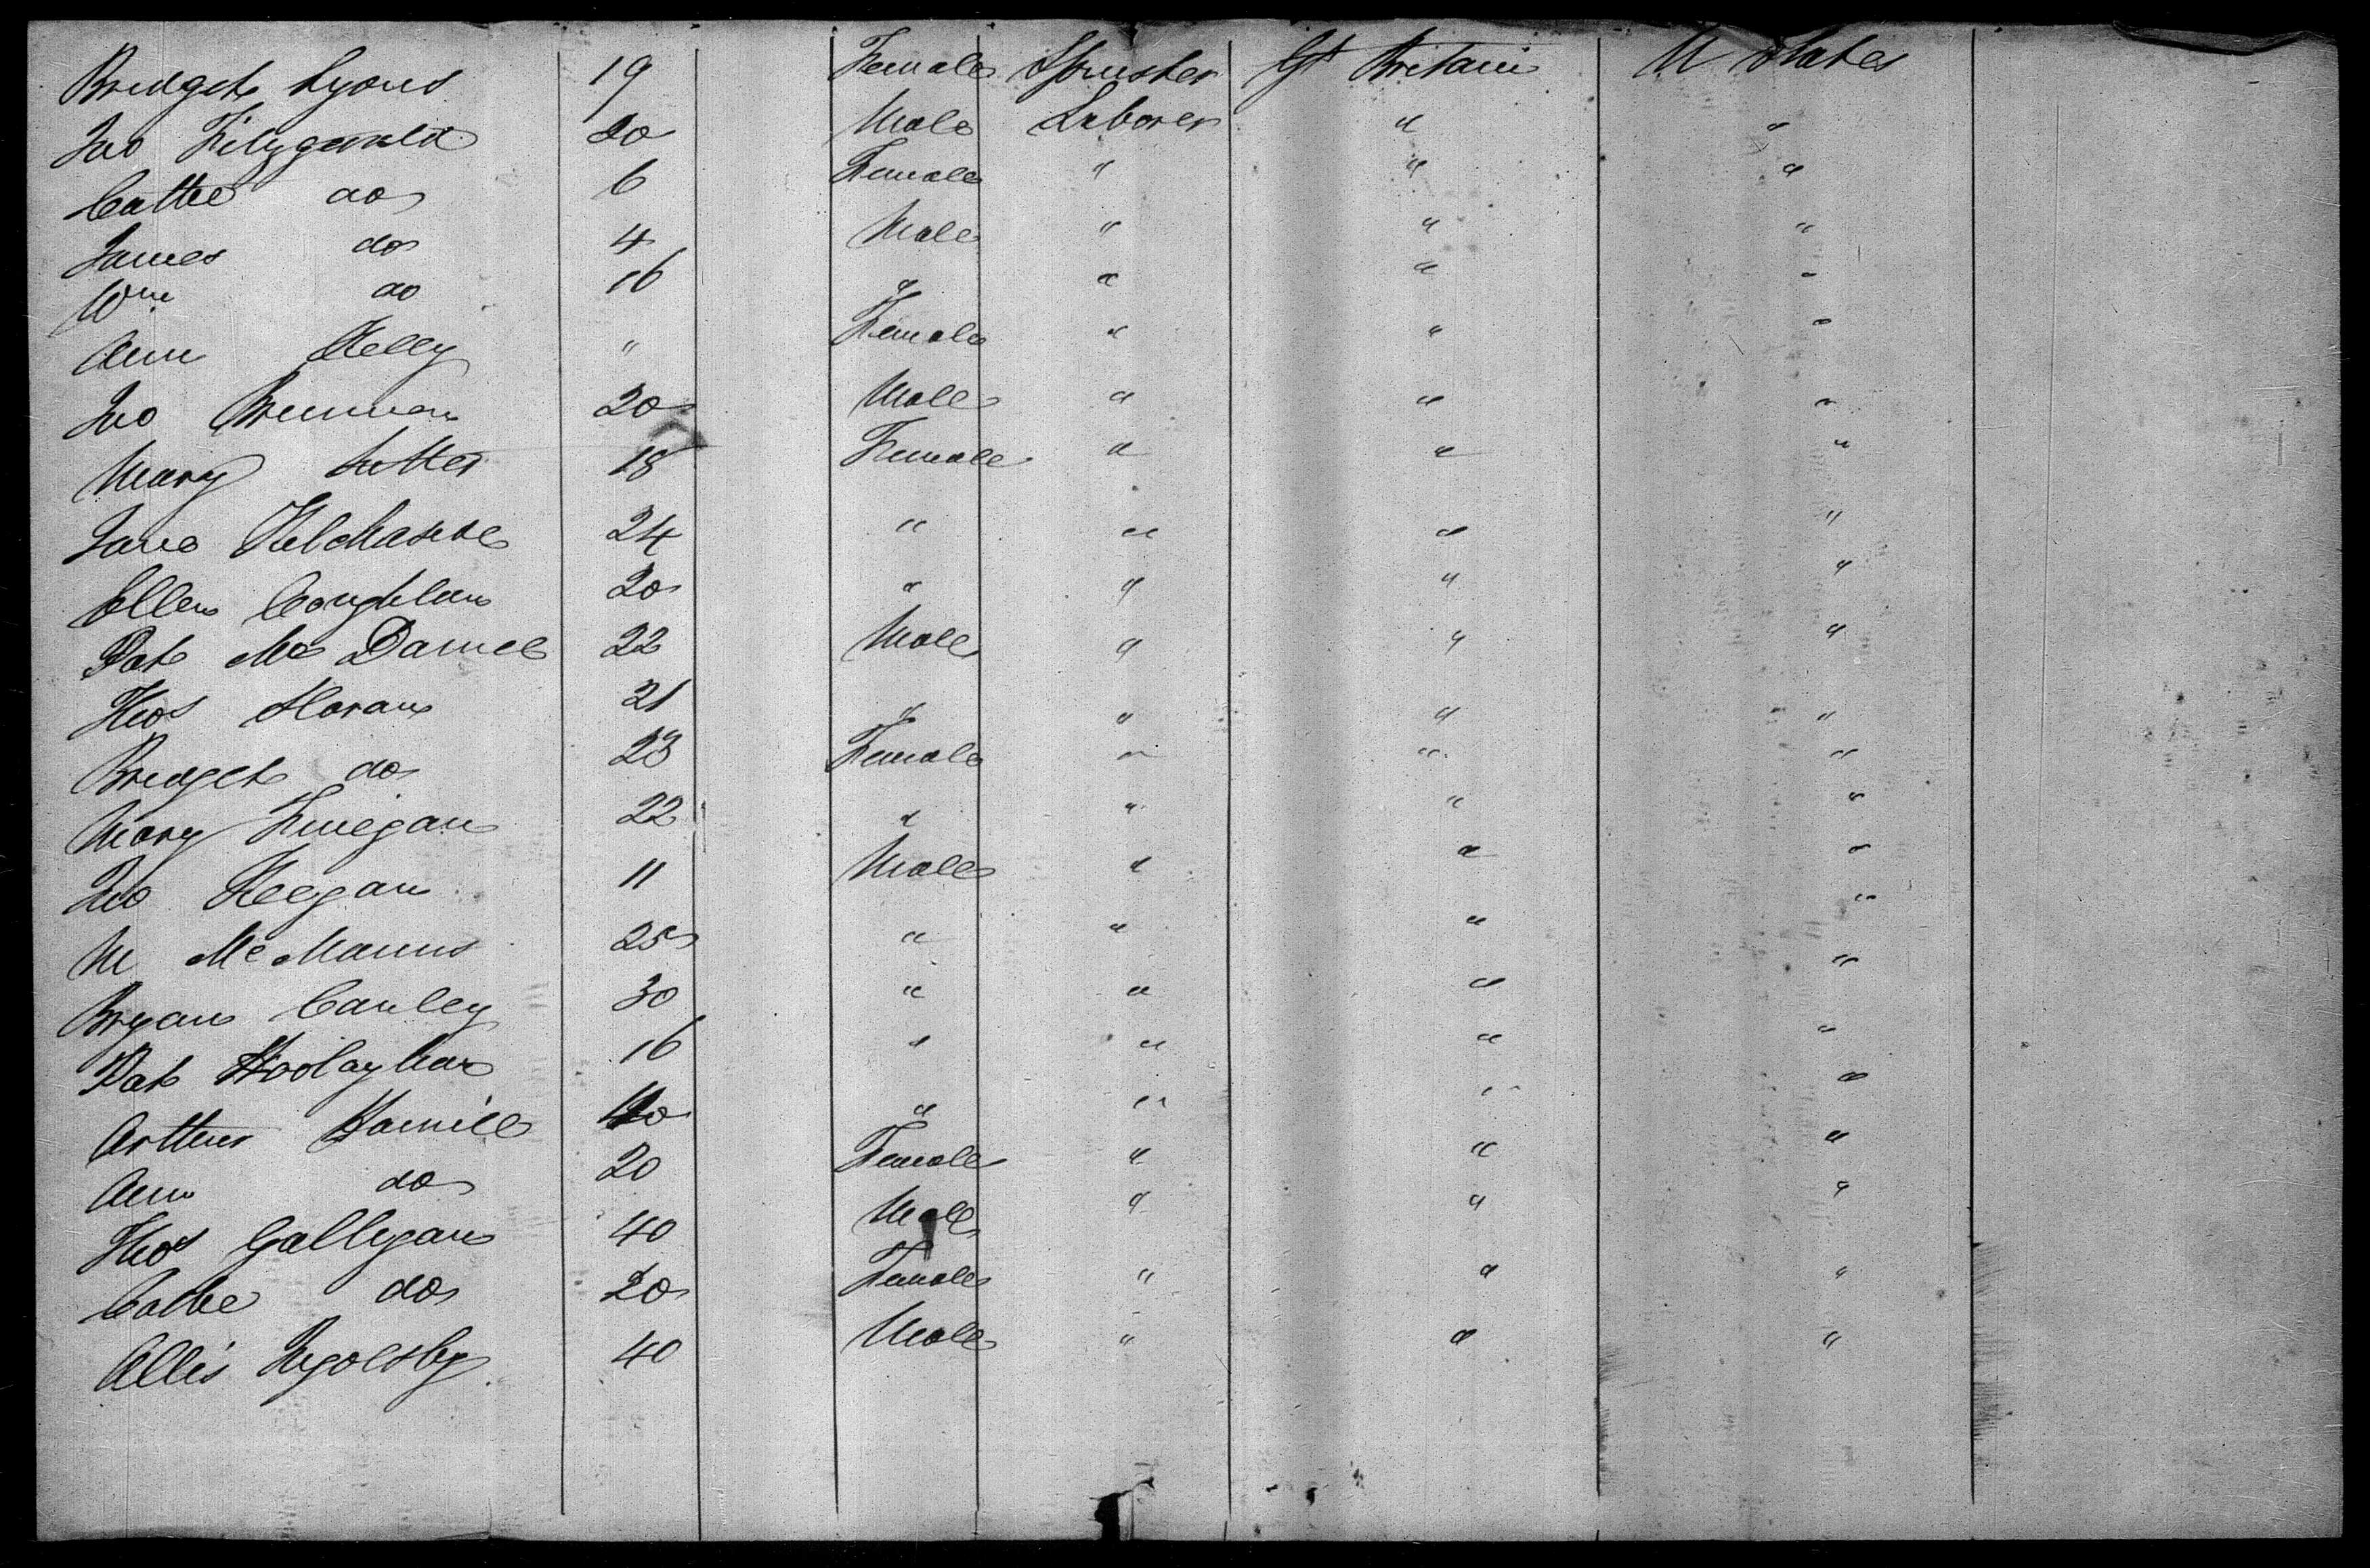 Bridget Lyons 19 Female Spinster Gt Britain U States
Jno Fitzgerald 20 Male Laborer " "
Cathe do 6 Female " " "
James do 4 Male " " "
Wm do 16 " " " "
Ann Kelly " Female " " "
Jno Brennan 20 Male " " "
Mary 18 Female " " "
Jane 24 " " " "
Ellen Coughlan 20 " " " "
Pat Mc Daniel 22 Male " " "
Thos Horan 21 " " " "
Bridget do 23 Female " " "
Mary Finegan 22 " " " "
Jno Keegan 11 Male " " "
M McManus 25 " " " "
Bryan Cauley 30 " " " "
Pat Hoolaghan 16 " " " "
Arthur Hamill " " " "
Ann do 20 Female " " "
Thos Galligan 40 Male " " "
Cathe do 20 Female " " "
Allis 40 Male " " "